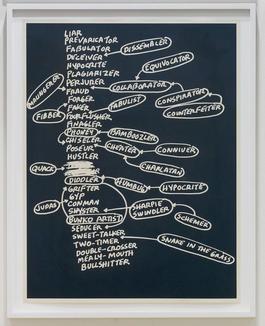 LIAR
PREVARICATOR
FABULATOR
DISSEMBLER
DECEIVER
HYPOCRITE
EQUIVOCATOR
PLAGIARIZER
PERJURER
COLLABORATOR
MALINGERER
FRAUD
CONSPIRATOR
FORGER
FABULIST
FAKER
COUNTERFEITER
FIBBER
FOURFLUSHER
FINAGLER
PHONEY
BAMBOOZLER
CHISELER
CHEATER
CONNIVER
POSEUR
HUSTLER
QUACK
CHARLATAN
DIDDLER
HUMBUG
HYPOCRITE
GRIFTER
GYP
JUDAS
CONMAN
SHARPIE
SWINDLER
SHYSTER
SCHEMER
BUNKO ARTIST
SEDUCER
SWEET-TALKER
SNAKE IN THE GRASS
TWO-TIMER
DOUBLE-CROSSER
MEALY-MOUTH
BULLSHITTER